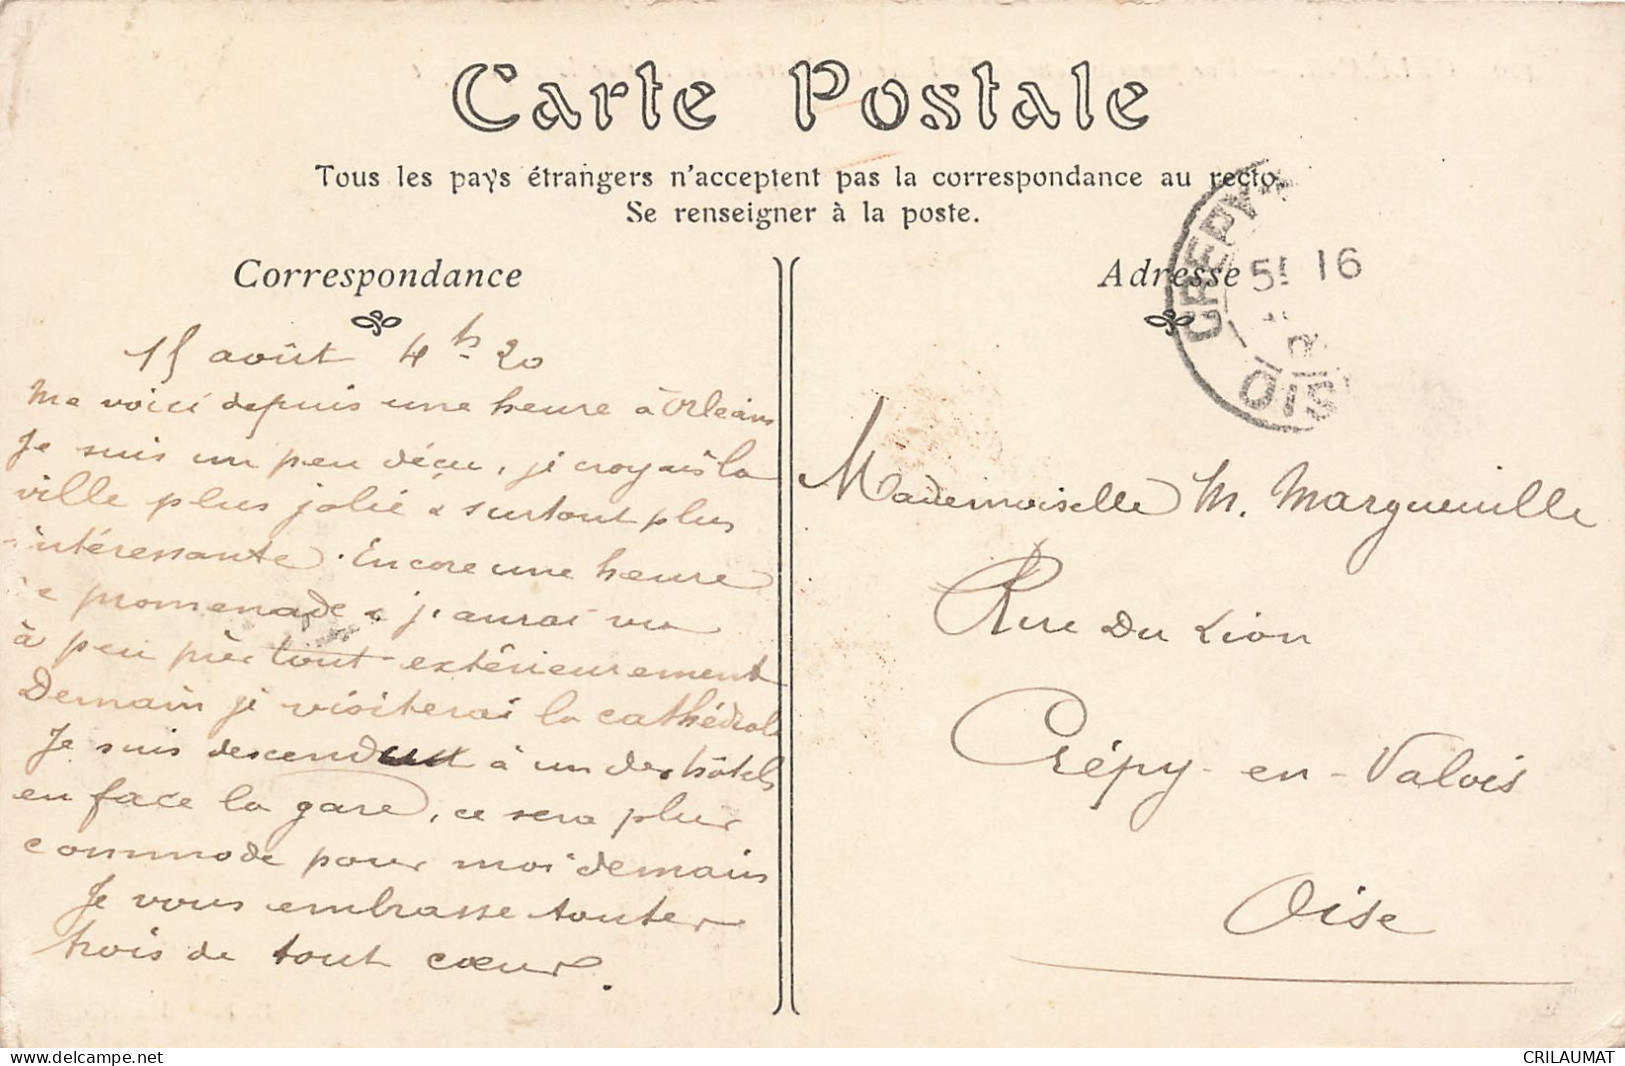 Carte Postale
Tous les pays étrangers n'acceptent pas la correspondance au recto.
Se renseigner à la poste.
Correspondance
15 août 4h 20
Me voici depuis une heure à Orléans
Je suis un peu déçu, je croyais la
ville plus jolie & surtout plus
intéressante. Encore une heure
de promenade & j'aurai vu
à peu près tout extérieurement
Demain je visiterai la cathédrale
Je suis descendu à un des hôtels
en face la gare, ce sera plus
commode pour moi demain
Je vous embrasse toutes
trois de tout cœur.
Adresse
CREPY
5! 16
OIS
Mademoiselle M. Margueuille
Rue du Lion
Crépy-en-Valois
Oise
www.delcampe.net
CRILAUMAT